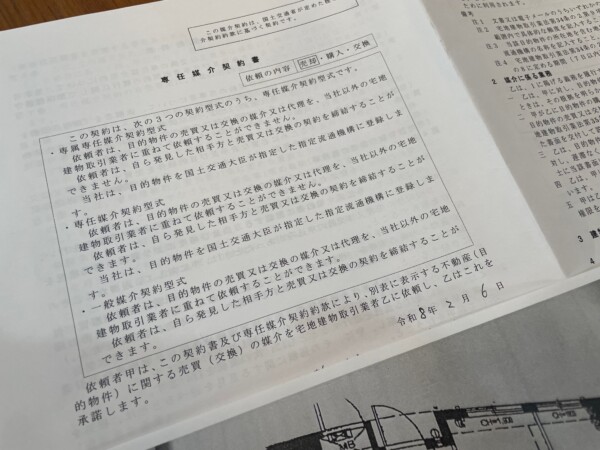 この媒介契約は、国土交通省が定めた標準
介契約約款に基づく契約です。
専任媒介契約書
依頼の内容 売却・購入・交換
この契約は、次の3つの契約型式のうち、専任媒介契約型式です。
・専属専任媒介契約型式
依頼者は、目的物件の売買又は交換の媒介又は代理を、当社以外の宅地
建物取引業者に重ねて依頼することができません。
依頼者は、自ら発見した相手方と売買又は交換の契約を締結することが
できません。
当社は、目的物件を国土交通大臣が指定した指定流通機構に登録しま
す。
・専任媒介契約型式
依頼者は、目的物件の売買又は交換の媒介又は代理を、当社以外の宅地
建物取引業者に重ねて依頼することができません。
依頼者は、自ら発見した相手方と売買又は交換の契約を締結することが
できます。
当社は、目的物件を国土交通大臣が指定した指定流通機構に登録しま
す。
・一般媒介契約型式
依頼者は、目的物件の売買又は交換の媒介又は代理を、当社以外の宅地
建物取引業者に重ねて依頼することができます。
依頼者は、自ら発見した相手方と売買又は交換の契約を締結することが
できます。
依頼者甲は、この契約書及び専任媒介契約約款により、別表に表示する不動産（目
的物件）に関する売買（交換）の媒介を宅地建物取引業者乙に依頼し、乙はこれを
承諾します。
令和8年2月6日
備考
2 媒介に係る業務
3
4
MB